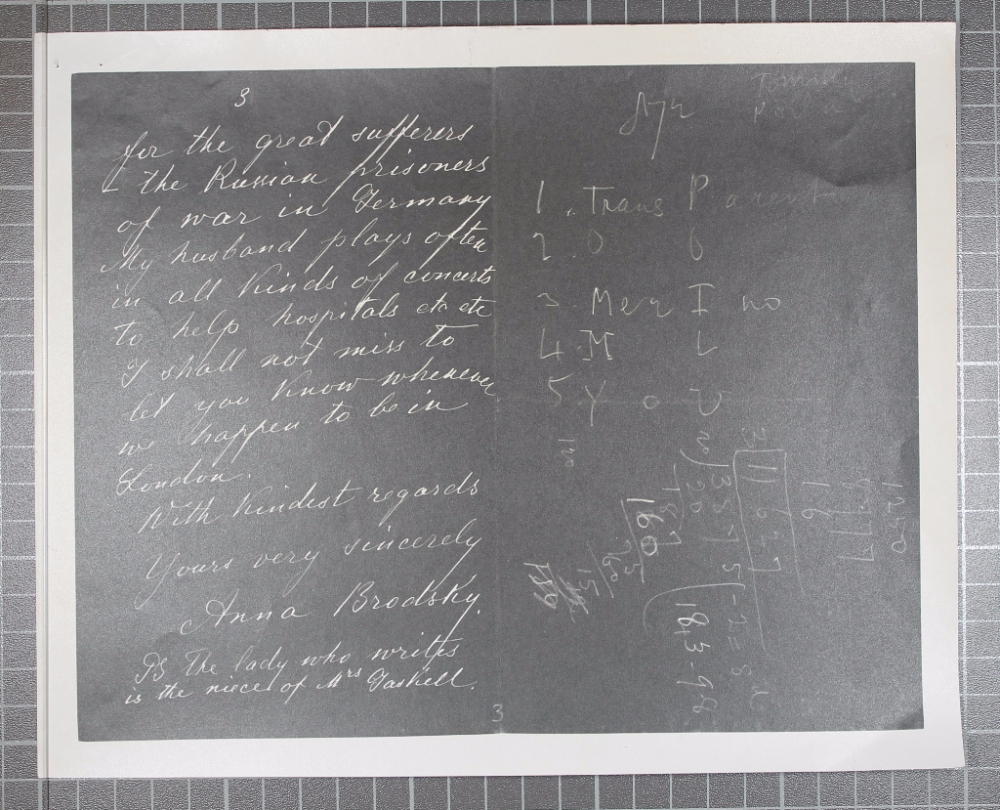 3
for the great sufferers
– the Russian prisoners
of war in Germany
My husband plays often
in all kinds of concerts
to help hospitals etc etc
I shall not miss to
let you know whenever
we happen to be in
London.
With kindest regards
Yours very sincerely
Anna Brodsky.
PS The lady who writes
is the niece of Mrs Gaskell.
3
1. Trans P arent
2. O O
3. Mer I no
4. M L
5 Y o
160
18,3-98
1250